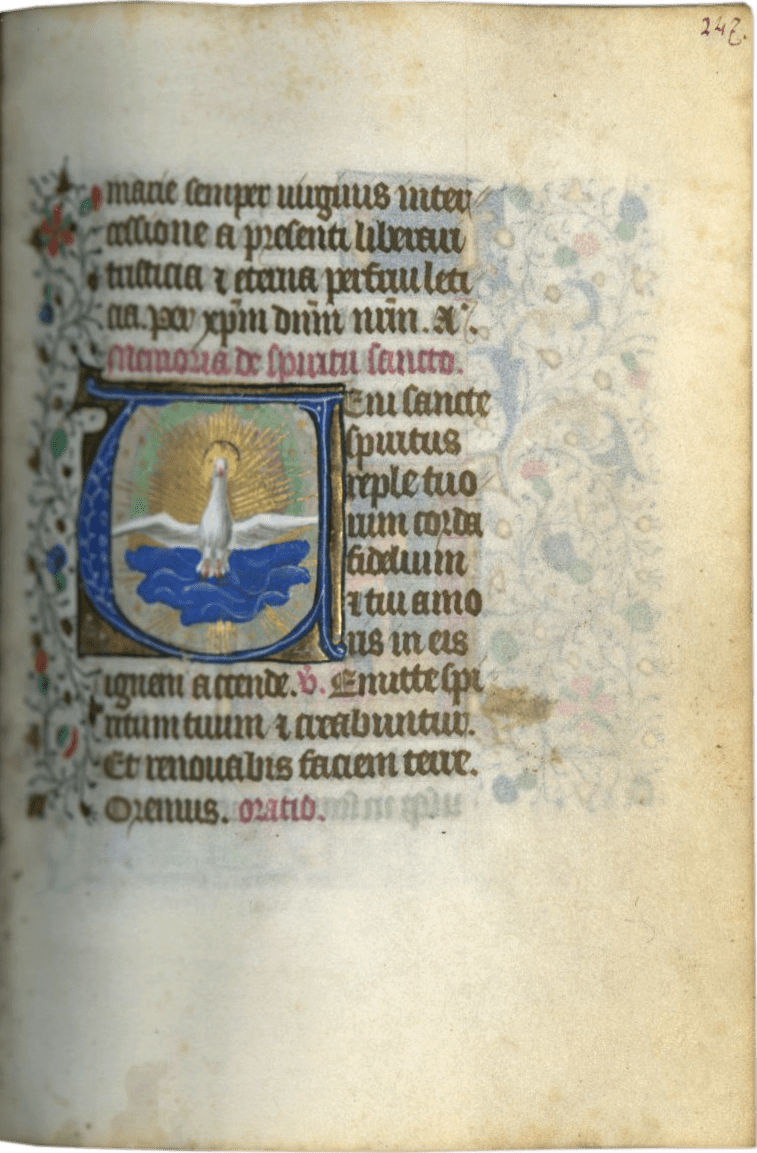 247.
marie semper uirginis inter
cessione a presenti liberari
tristicia ⁊ eterna perfrui leti
cia. per xp̄m dnm̄ nr̄m. A.
Memoria de spiritu sancto.
Ueni sancte
spiritus
reple tuo
rum corda
fidelium
⁊ tui amo
ris in eis
ignem accende. v̄. Emitte spi
ritum tuum ⁊ creabuntur.
Et renouabis faciem terre.
Oremus. oratio.